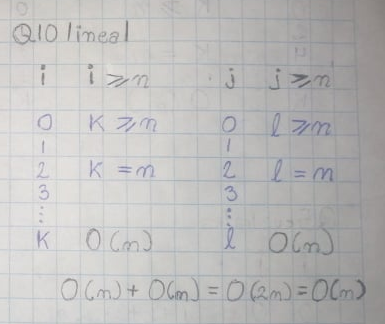 Q10 lineal
i i ≥ n j j ≥ n
0 K ≥ n 0 l ≥ n
1 1
2 K = n 2 l = n
3 3
⋮ ⋮
K O(n) l O(n)
O(n) + O(n) = O(2n) = O(n)